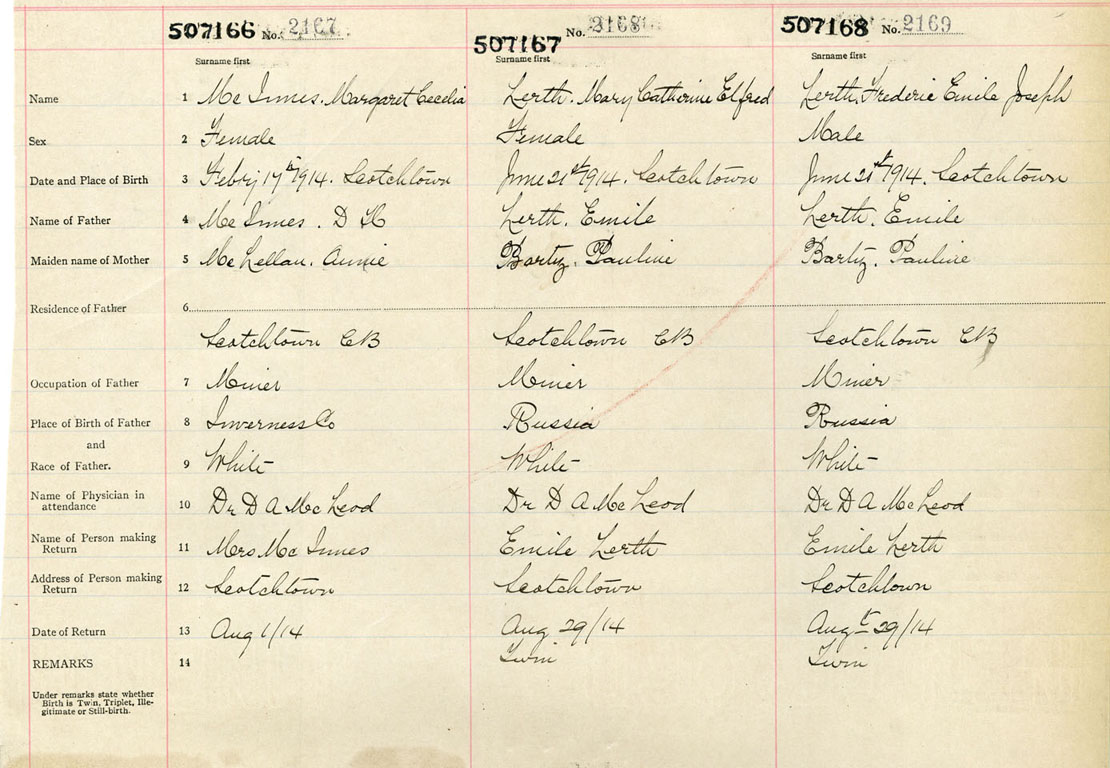 507166 No. 2167 507167 No. 2168 507168 No. 2169
Surname first Surname first Surname first
Name 1 Mc Innes. Margaret Cecelia Lerth. Mary Catherine Elfred Lerth. Frederic Emile Joseph
Sex 2 Female Female Male
Date and Place of Birth 3 Febry 17th 1914. Scotchtown June 21st 1914. Scotchtown June 21st 1914. Scotchtown
Name of Father 4 Mc Innes. D H Lerth. Emile Lerth. Emile
Maiden name of Mother 5 Mc Lellan. Annie Bartz. Pauline Bartz. Pauline
Residence of Father 6
Scotchtown CB Scotchtown CB Scotchtown CB
Occupation of Father 7 Miner Miner Miner
Place of Birth of Father 8 Inverness Co Russia Russia
and
Race of Father. 9 White White White
Name of Physician in
attendance 10 Dr D A Mc Leod Dr D A Mc Leod Dr D A Mc Leod
Name of Person making
Return 11 Mrs Mc Innes Emile Lerth Emile Lerth
Address of Person making
Return 12 Scotchtown Scotchtown Scotchtown
Date of Return 13 Aug 1/14 Aug 29/14 Augt 29/14
REMARKS 14 Twin Twin
Under remarks state whether
Birth is Twin, Triplet, Ille-
gitimate or Still-birth.